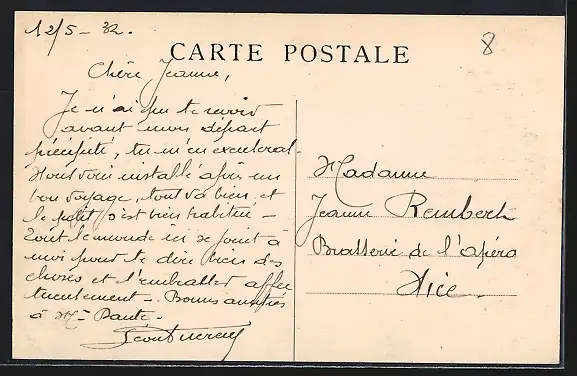 12/5 - 32.
8
CARTE POSTALE
Chère Jeanne,
Je n'ai pu te revoir
avant mon départ
précipité, tu m'en excuseras -
Nous voici installé après un
bon voyage, tout va bien et
le petit s'est bien habitué -
Tout le monde ici se joint à
moi pour te dire bien des
choses et t'embrasser affec
tueusement - Bonnes amitiés
à Mr
Madame
Jeanne Rembert
Brasserie de l'apéro
Nice -